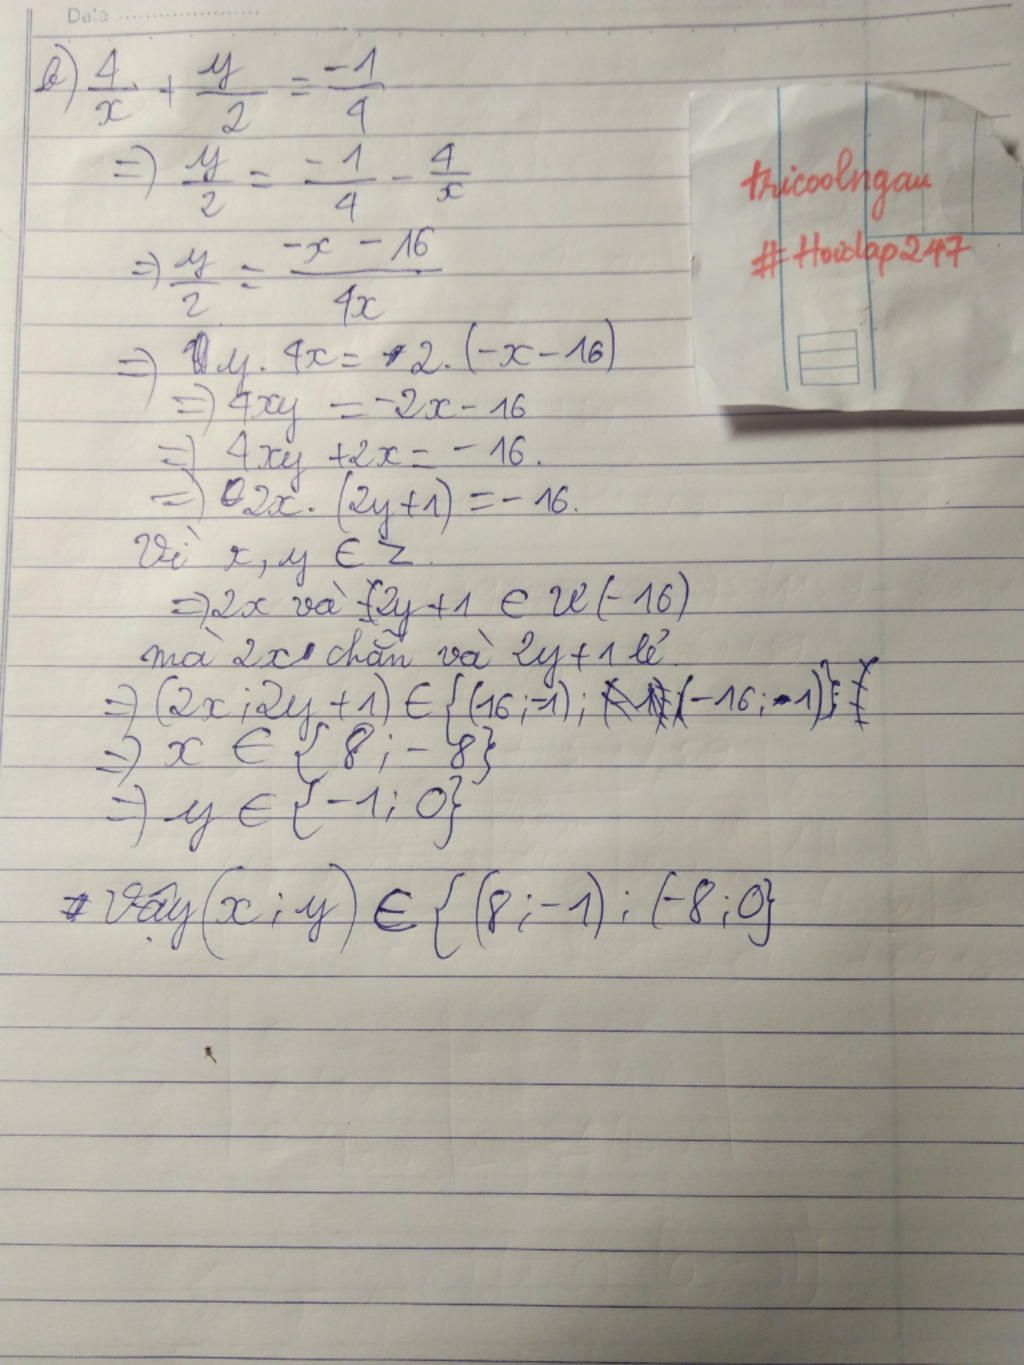 Date
b) 4/x + y/2 = -1/4
=> y/2 = -1/4 - 4/x
=> y/2 = -x - 16/4x
=> y. 4x = 2. (-x - 16)
=> 4xy = -2x - 16
=> 4xy + 2x = - 16.
=> 2x. (2y+1) = - 16.
Vì x, y ∈ Z.
=> 2x và 2y+1 ∈ Ư(-16)
mà 2x chẵn và 2y+1 lẻ
=> (2x; 2y+1) ∈ {(16;-1); (-16; 1)}
=> x ∈ { 8; - 8}
=> y ∈ {-1; 0}
Vậy (x; y) ∈ {(8; -1); (-8; 0}
tricoolngau
#Hoidap247